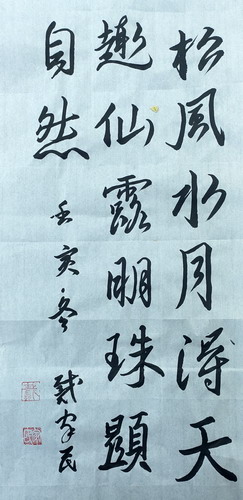 松風水月得天
趣仙露明珠顯
自然
壬寅冬 戴民